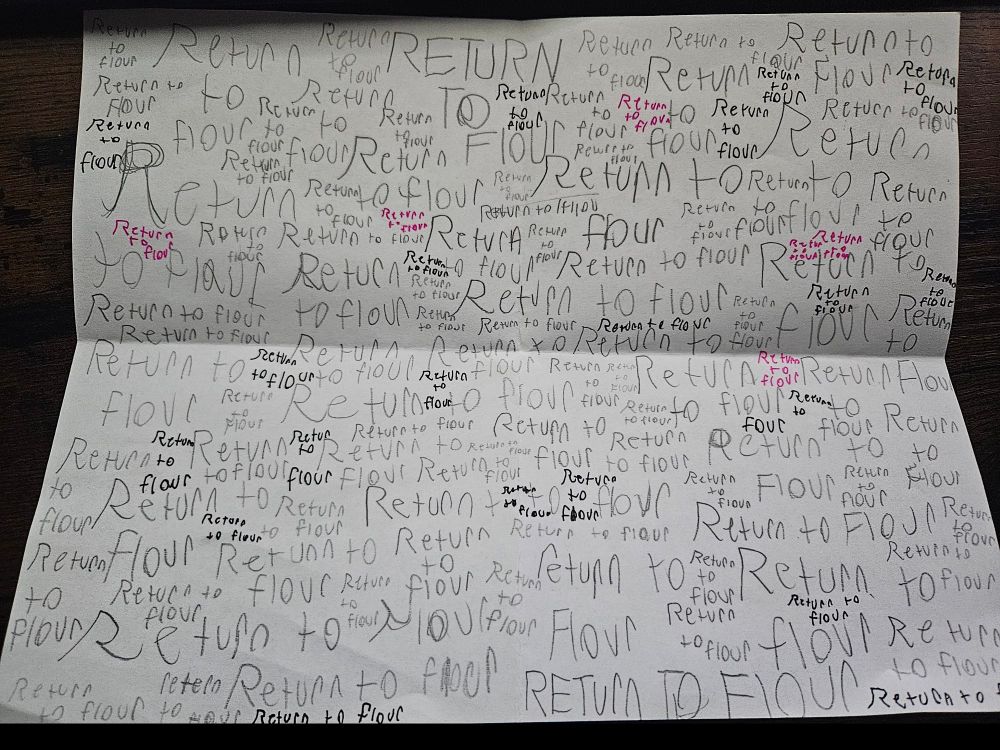 Return Return Return RETURN Return Return to Return to
to to to flour flour
flour flour
Return to to Return TO Return Return Return to Return Flour Return
flour to to to to to
flour flour flour flour flour
Return Return Return Return to Return Return Return
to flour to to to flour to to
flour flour flour flour Flour flour flour
Return Return Return Return to Return to Return
to to flour Return to flour to to
flour flour flour flour flour
Return Return Return Return Return Return flour Return Return
to to to flour to to to
flour flour flour flour flour flour
to flour Return Return to flour Return to flour Return to Return
to to flour
flour flour
Return to flour to flour Return Return to flour Return flour Return Return
to flour to to flour to to
flour flour
Return to flour Return to flour Return to flour
Return to flour Return to Return to flour
Return to Return Return Return to flour Return Return Return Return Flour
to flour to to to
flour flour flour
flour Return Return to flour Return to flour Return to
to to flour four flour
flour
Return Return Return Return to flour Return to Return to
to to to Return to flour to flour to
flour flour
to Return to flour flour Return to flour Return Flour Return Flour
flour to to to
flour flour flour
Return to Return Return to Return flour Return to Flour Return
flour to flour to to
flour flour
Return flour Return to Return Return to flour Return to
to flour
Return to flour Return flour Return Return to Return Return to flour
to flour to to flour to
flour flour flour
flour Return to flour flour Flour Return flour Return
to to flour
flour
Return retern Return to flour RETURN TO FLOUR Return to
flour to to flour Return to flour